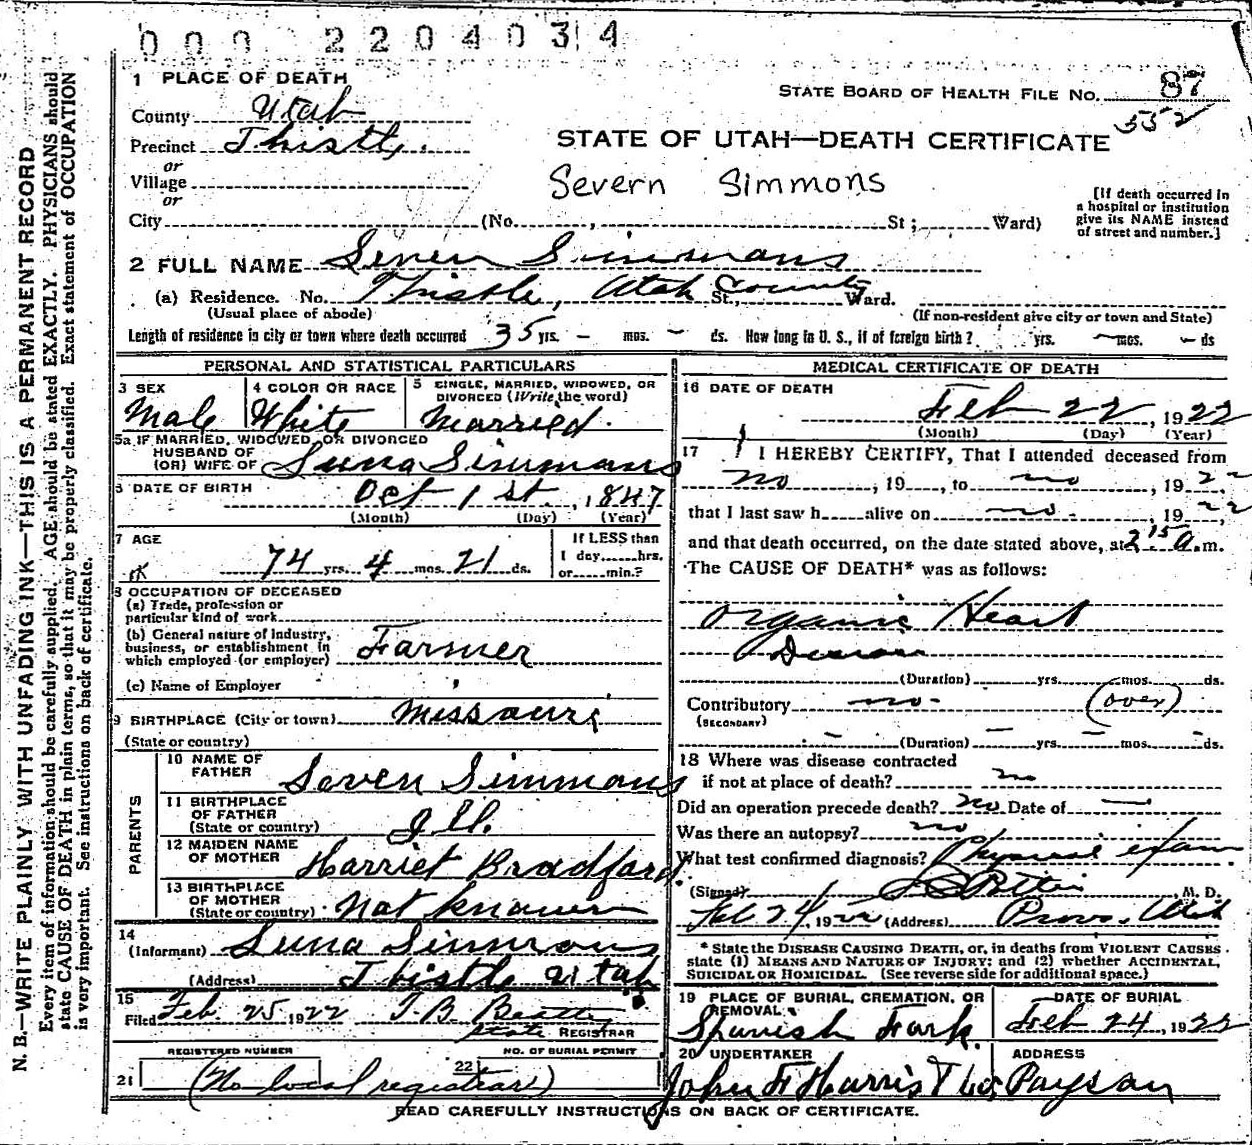 000 2204034
1 PLACE OF DEATH
STATE BOARD OF HEALTH FILE NO. 87
County Utah
552
Precinct Thistle.
STATE OF UTAH—DEATH CERTIFICATE
or
Village
Severn Simmons
or
[If death occurred in a hospital or institution give its NAME instead of street and number.]
City (No. , St; Ward)
2 FULL NAME Seven Simmons
(a) Residence. No. Thistle, Utah County St., Ward.
(Usual place of abode) (If non-resident give city or town and State)
Length of residence in city or town where death occurred 35 yrs. – mos. – ds. How long in U. S., if of foreign birth? yrs. – mos. – ds
PERSONAL AND STATISTICAL PARTICULARS
3 SEX Male
4 COLOR OR RACE White
5 SINGLE, MARRIED, WIDOWED, OR DIVORCED (Write the word) Married.
5a IF MARRIED, WIDOWED, OR DIVORCED
HUSBAND OF
(OR) WIFE OF Luna Simmons
6 DATE OF BIRTH Oct 1st, 1847
(Month) (Day) (Year)
7 AGE
74 yrs. 4 mos. 21 ds.
If LESS than
1 day, hrs.
or min.?
8 OCCUPATION OF DECEASED
(a) Trade, profession or
particular kind of work
(b) General nature of industry,
business, or establishment in
which employed (or employer) Farmer
(c) Name of Employer
9 BIRTHPLACE (City or town) Missouri
(State or country)
PARENTS
10 NAME OF FATHER Seven Simmons
11 BIRTHPLACE OF FATHER (State or country) Ill.
12 MAIDEN NAME OF MOTHER Harriet Bradford.
13 BIRTHPLACE OF MOTHER (State or country) Not known
14
(Informant) Luna Simmons
(Address) Thistle Utah
15
Filed Feb. 25 1922 T. B. Beatty
State REGISTRAR
REGISTERED NUMBER NO. OF BURIAL PERMIT
21 22
(No local registrar)
MEDICAL CERTIFICATE OF DEATH
16 DATE OF DEATH
Feb 22, 1922
(Month) (Day) (Year)
17 I HEREBY CERTIFY, That I attended deceased from
no, 19 , to no, 1922
that I last saw h alive on no - 1922,
and that death occurred, on the date stated above, at 2 15 a.m.
The CAUSE OF DEATH* was as follows:
Organic Heart
Disease
(Duration) yrs. mos. ds.
Contributory no- (over)
(SECONDARY)
(Duration) – yrs – mos. – ds.
18 Where was disease contracted
if not at place of death? no
Did an operation precede death? no Date of —
Was there an autopsy? no
What test confirmed diagnosis? Physical exam
(Signed) M. D.
Feb 24, 1922 (Address) Provo. Utah
* State the DISEASE CAUSING DEATH, or, in deaths from VIOLENT CAUSES
state (1) MEANS AND NATURE OF INJURY; and (2) whether ACCIDENTAL,
SUICIDAL OR HOMICIDAL. (See reverse side for additional space.)
19 PLACE OF BURIAL, CREMATION, OR REMOVAL.
Spanish Fork.
DATE OF BURIAL
Feb 24, 1922
20 UNDERTAKER
John F Harris
ADDRESS
Payson
READ CAREFULLY INSTRUCTIONS ON BACK OF CERTIFICATE.
N. B.—WRITE PLAINLY WITH UNFADING INK—THIS IS A PERMANENT RECORD
Every item of information should be carefully supplied. AGE should be stated EXACTLY. PHYSICIANS should
state CAUSE OF DEATH in plain terms, so that it may be properly classified. Exact statement of OCCUPATION
is very important. See instructions on back of certificate.